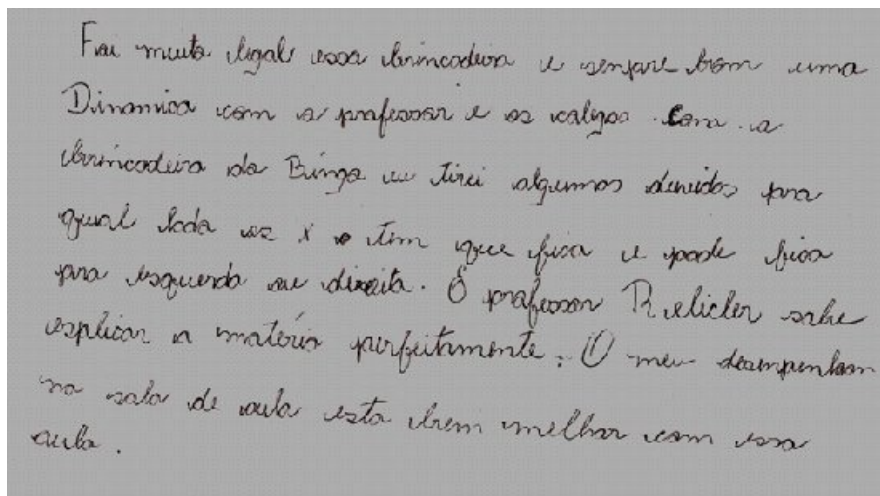 Foi muito legal essa brincadeira e sempre bom uma
Dinamica com o professor e os colegas. Com a
brincadeira do Bingo eu tirei algumas duvidas pra
qual lado os x e tem que fica e pode fica
pra esquerda ou direita. O professor sabe
explicar a materia perfeitamente. O meu desempenho
na sala de aula esta bem melhor com essa
aula.